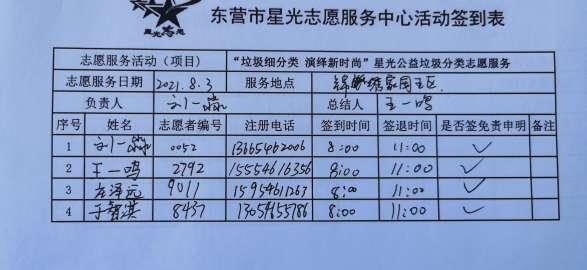 星光志愿
东营市星光志愿服务中心活动签到表
志愿服务活动（项目） “垃圾细分类 演绎新时尚”星光公益垃圾分类志愿服务
志愿服务日期 2021.8.3 服务地点 家园 区
负责人 刘一 总结人 王一鸣
序号 姓名 志愿者编号 注册电话 签到时间 签退时间 是否签免责申明 备注
1 刘一 0052 13665462006 8:00 11:00 ✓
2 王一鸣 2792 15554616356 8:00 11:00 ✓
3 泽远 9011 15954611263 8:00 11:00 ✓
4 于智淇 8437 13054655786 8:00 11:00 ✓